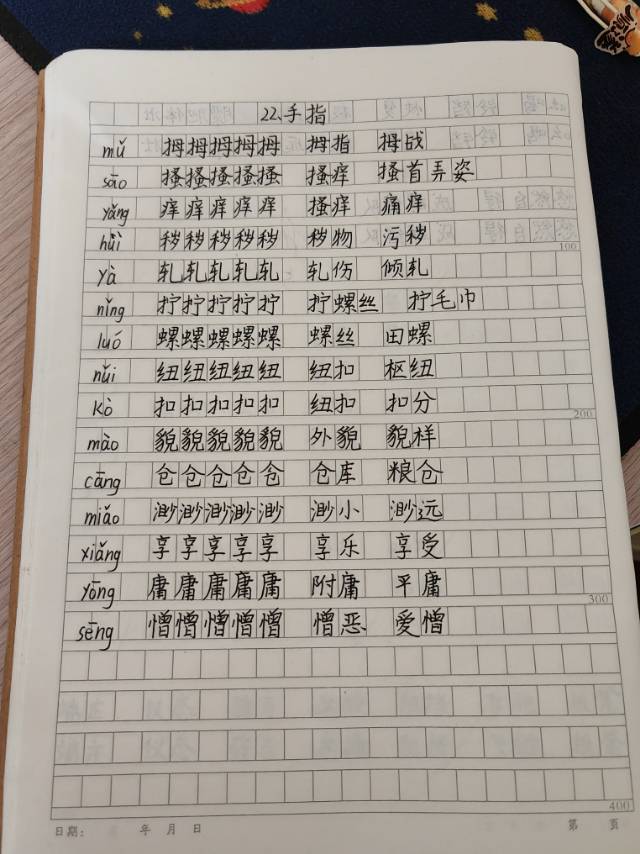 22.手指
mǔ 拇拇拇拇拇 拇指 拇战
sāo 搔搔搔搔搔 搔痒 搔首弄姿
yǎng 痒痒痒痒痒 搔痒 痛痒
huì 秽秽秽秽秽 秽物 污秽
yà 轧轧轧轧轧 轧伤 倾轧
nǐng 拧拧拧拧拧 拧螺丝 拧毛巾
luó 螺螺螺螺螺 螺丝 田螺
nǔi 纽纽纽纽纽 纽扣 枢纽
kò 扣扣扣扣扣 纽扣 扣分
mào 貌貌貌貌貌 外貌 貌样
cāng 仓仓仓仓仓 仓库 粮仓
miǎo 渺渺渺渺渺 渺小 渺远
xiǎng 享享享享享 享乐 享受
yōng 庸庸庸庸庸 附庸 平庸
sēng 憎憎憎憎憎 憎恶 爱憎
100
200
300
400
日期: 年 月 日 第 页